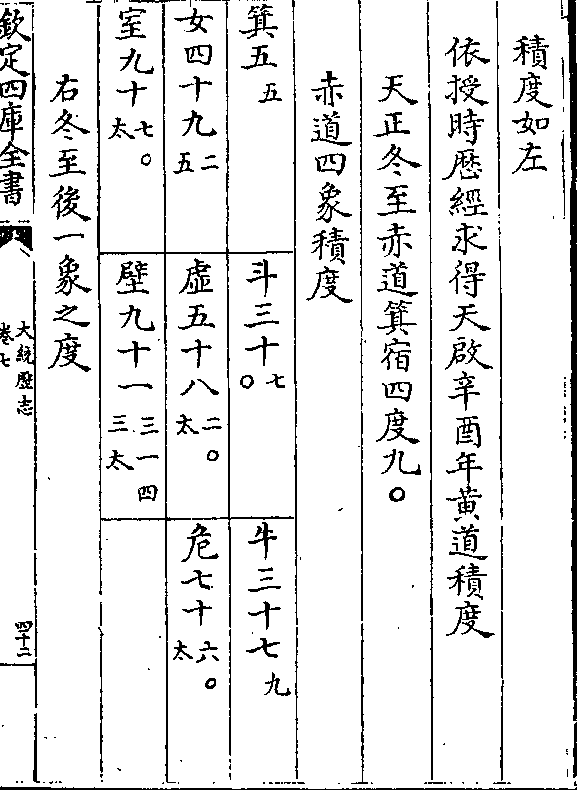 積度如左
依授時厯經求得天啟辛酉年黄道積度
天正冬至赤道箕宿四度九〇
赤道四象積度
箕五 五 斗三十 七〇 牛三十七 九
女四十九 二五 虛五十八 二〇太 危七十 六〇太
室九十 七〇太 壁九十一 三一四三太
右冬至後一象之度
欽定四庫全書
大統厯志
卷七
四十二